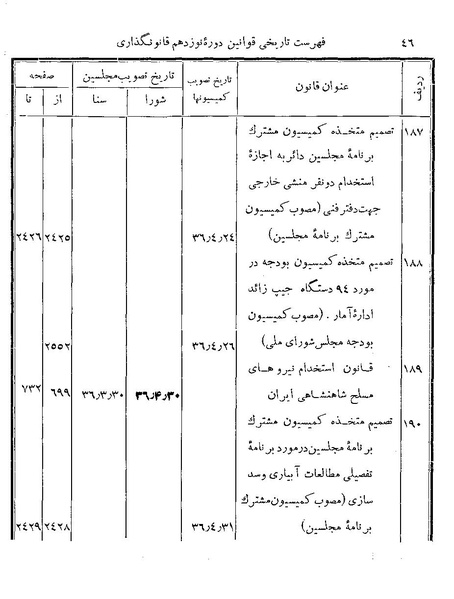 ۴۶ فهرست تاریخی قوانین دورهٔ نوزدهم قانونگذاری
ردیف عنوان قانون تاریخ تصویب کمیسیونها تاریخ تصویب مجلسین صفحه
شورا سنا از تا
۱۸۷ تصمیم متخذه کمیسیون مشترک
برنامهٔ مجلسین دائر به اجازهٔ
استخدام دو نفر منشی خارجی
جهت دفتر فنی (مصوب کمیسیون
مشترک برنامهٔ مجلسین) ۳۶٫۴٫۲۴ ۲۴۲۵ ۲۴۲۶
۱۸۸ تصمیم متخذه کمیسیون بودجه در
مورد ۹۴ دستگاه جیپ زائد
ادارهٔ آمار . (مصوب کمیسیون
بودجه مجلس شورای ملی) ۳۶٫۴٫۲۶ ۲۵۵۲
۱۸۹ قانون استخدام نیروهای
مسلح شاهنشاهی ایران ۳۶٫۴٫۳۰ ۳۶٫۳٫۳۰ ۶۹۹ ۷۳۲
۱۹۰ تصمیم متخذه کمیسیون مشترک
برنامهٔ مجلسین در مورد برنامهٔ
تفصیلی مطالعات آبیاری وسد
سازی (مصوب کمیسیون مشترک
برنامهٔ مجلسین) ۳۶٫۴٫۳۱ ۲۴۲۸ ۲۴۲۹